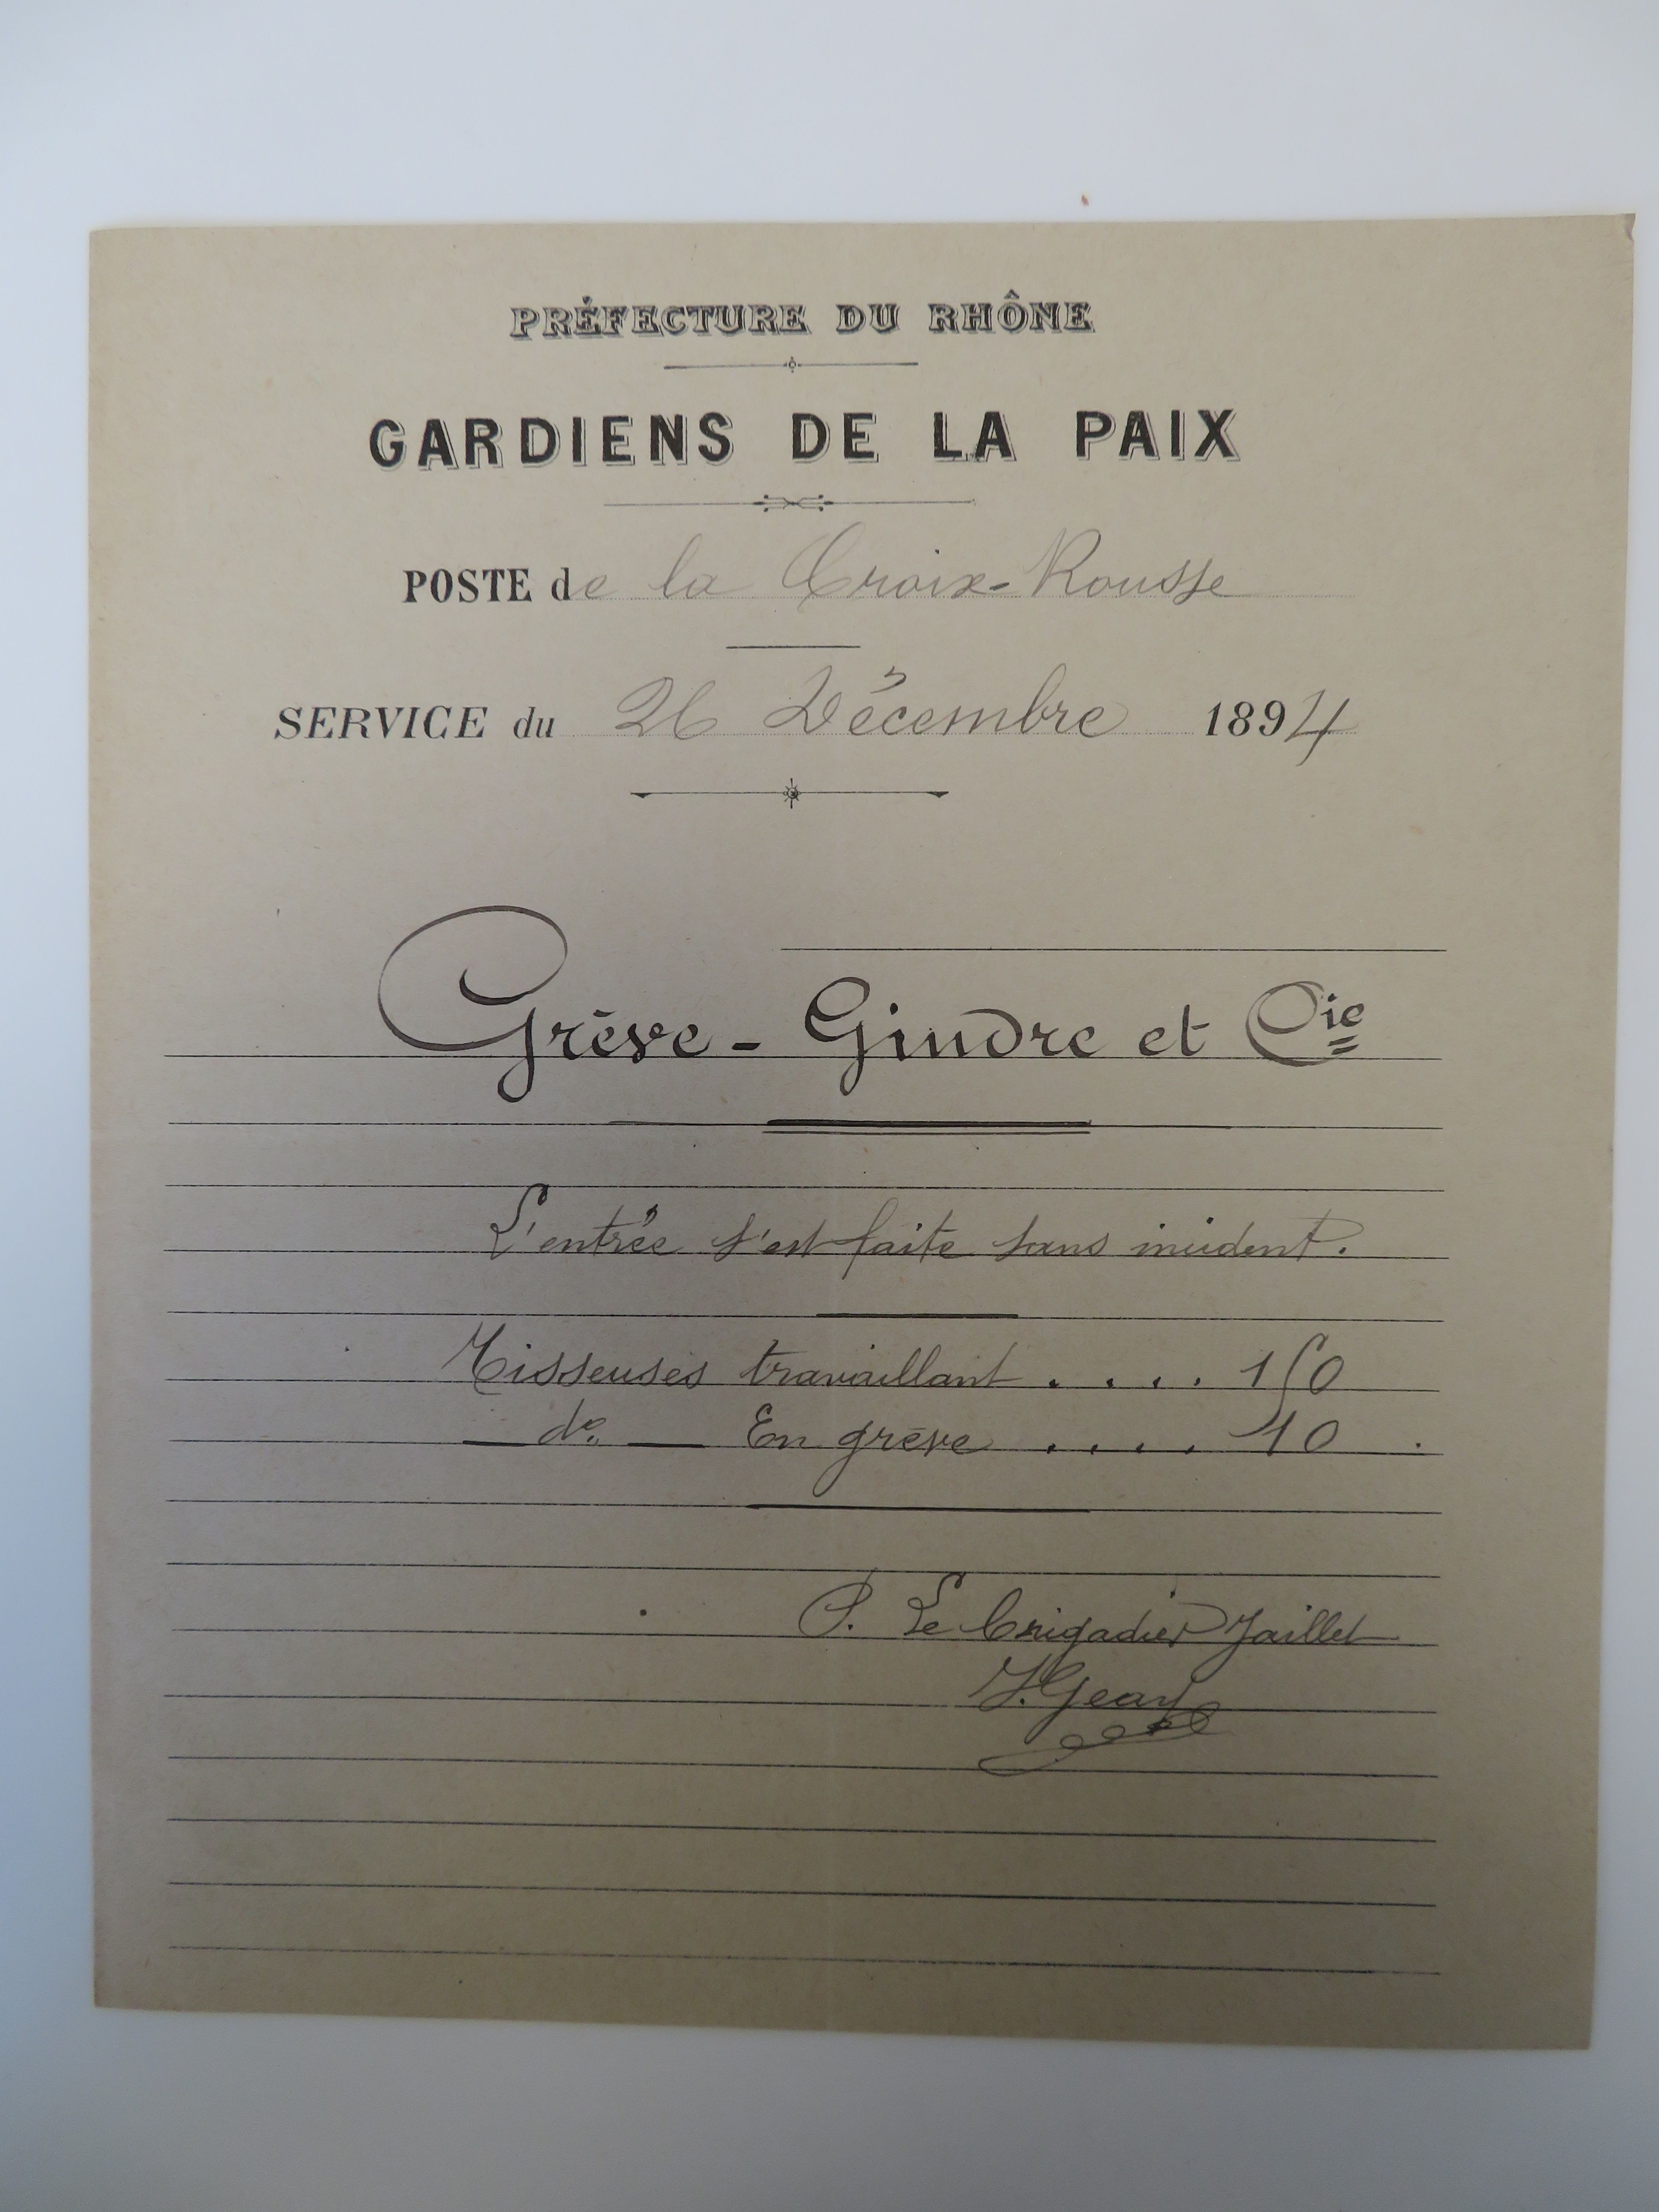 PRÉFECTURE DU RHÔNE
GARDIENS DE LA PAIX
POSTE de la Croix-Rousse
SERVICE du 26 Décembre 1894
Grève - Gindre et Cie
L'entrée s'est faite sans incident.
Tisseuses travaillant .... 150
— do — En grève .... 10 .
P. Le brigadier Jaillet
J. Geay